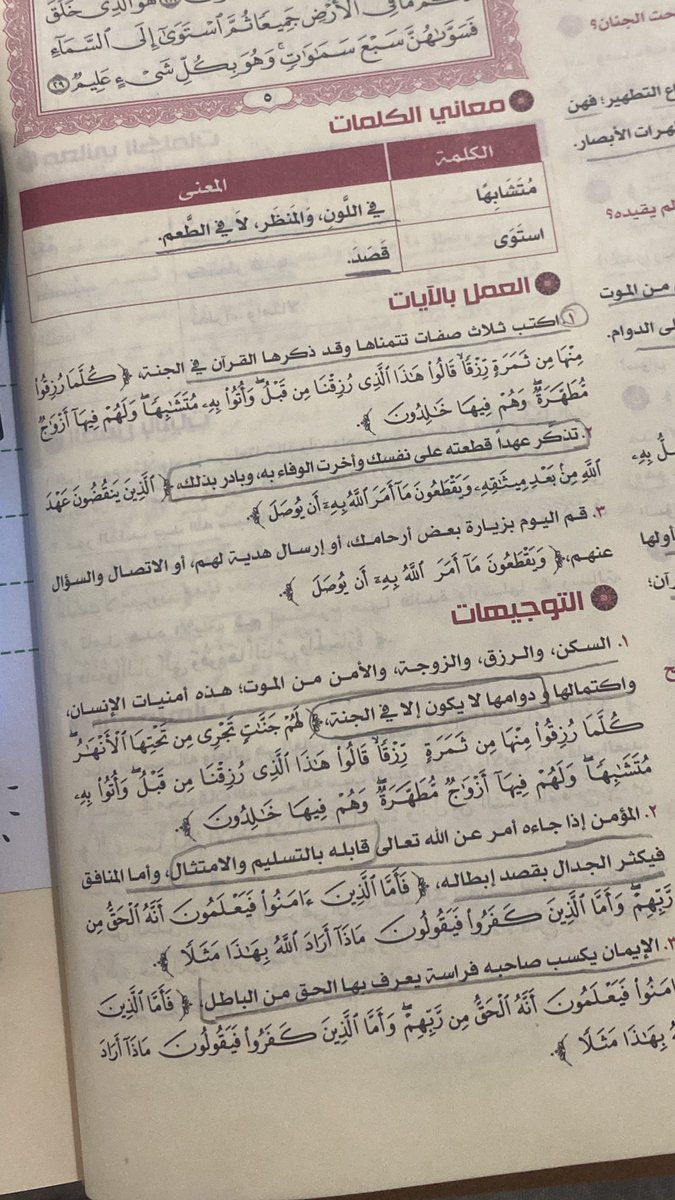 مَّا فِي الْأَرْضِ جَمِيعًا ثُمَّ اسْتَوَىٰ إِلَى السَّمَاءِ
فَسَوَّاهُنَّ سَبْعَ سَمَاوَاتٍ ۚ وَهُوَ بِكُلِّ شَيْءٍ عَلِيمٌ ٢٩
٥
معاني الكلمات
الكلمة المعنى
مُتَشَابِهًا في اللَّونِ، وَالمَنظَرِ، لاَ في الطَّعمِ.
استَوَى قَصَدَ.
العمل بالآيات
١. اكتب ثلاث صفات تتمناها وقد ذكرها القرآن في الجنة، ﴿ كُلَّمَا رُزِقُوا
مِنْهَا مِن ثَمَرَةٍ رِّزْقًا ۙ قَالُوا هَٰذَا الَّذِي رُزِقْنَا مِن قَبْلُ ۖ وَأُتُوا بِهِ مُتَشَابِهًا ۖ وَلَهُمْ فِيهَا أَزْوَاجٌ
مُّطَهَّرَةٌ ۖ وَهُمْ فِيهَا خَالِدُونَ ﴾.
٢. تذكَّر عهداً قطعته على نفسك وأخرت الوفاء به، وبادر بذلك، ﴿ الَّذِينَ يَنقُضُونَ عَهْدَ
اللَّهِ مِن بَعْدِ مِيثَاقِهِ وَيَقْطَعُونَ مَا أَمَرَ اللَّهُ بِهِ أَن يُوصَلَ ﴾.
٣. قم اليوم بزيارة بعض أرحامك، أو إرسال هدية لهم، أو الاتصال والسؤال
عنهم، ﴿ وَيَقْطَعُونَ مَا أَمَرَ اللَّهُ بِهِ أَن يُوصَلَ ﴾.
التوجيهات
١. السكن، والرزق، والزوجة، والأمن من الموت؛ هذه أمنيات الإنسان،
واكتمالها ودوامها لا يكون إلا في الجنة، ﴿ لَهُمْ جَنَّاتٍ تَجْرِي مِن تَحْتِهَا الْأَنْهَارُ ۖ
كُلَّمَا رُزِقُوا مِنْهَا مِن ثَمَرَةٍ رِّزْقًا ۙ قَالُوا هَٰذَا الَّذِي رُزِقْنَا مِن قَبْلُ ۖ وَأُتُوا بِهِ
مُتَشَابِهًا ۖ وَلَهُمْ فِيهَا أَزْوَاجٌ مُّطَهَّرَةٌ ۖ وَهُمْ فِيهَا خَالِدُونَ ﴾.
٢. المؤمن إذا جاءه أمر عن الله تعالى قابله بالتسليم والامتثال، وأما المنافق
فيكثر الجدال بقصد إبطاله، ﴿ فَأَمَّا الَّذِينَ ءَامَنُوا فَيَعْلَمُونَ أَنَّهُ الْحَقُّ مِن
رَّبِّهِمْ ۖ وَأَمَّا الَّذِينَ كَفَرُوا فَيَقُولُونَ مَاذَا أَرَادَ اللَّهُ بِهَٰذَا مَثَلًا ﴾.
٣. الإيمان يكسب صاحبه فراسة يعرف بها الحق من الباطل، ﴿ فَأَمَّا الَّذِينَ
ءَامَنُوا فَيَعْلَمُونَ أَنَّهُ الْحَقُّ مِن رَّبِّهِمْ ۖ وَأَمَّا الَّذِينَ كَفَرُوا فَيَقُولُونَ مَاذَا أَرَادَ
بِهَٰذَا مَثَلًا ﴾.
الجنان؟
التطهير؛ فهن
الأبصار.
يقيده؟
من الموت
الدوام.